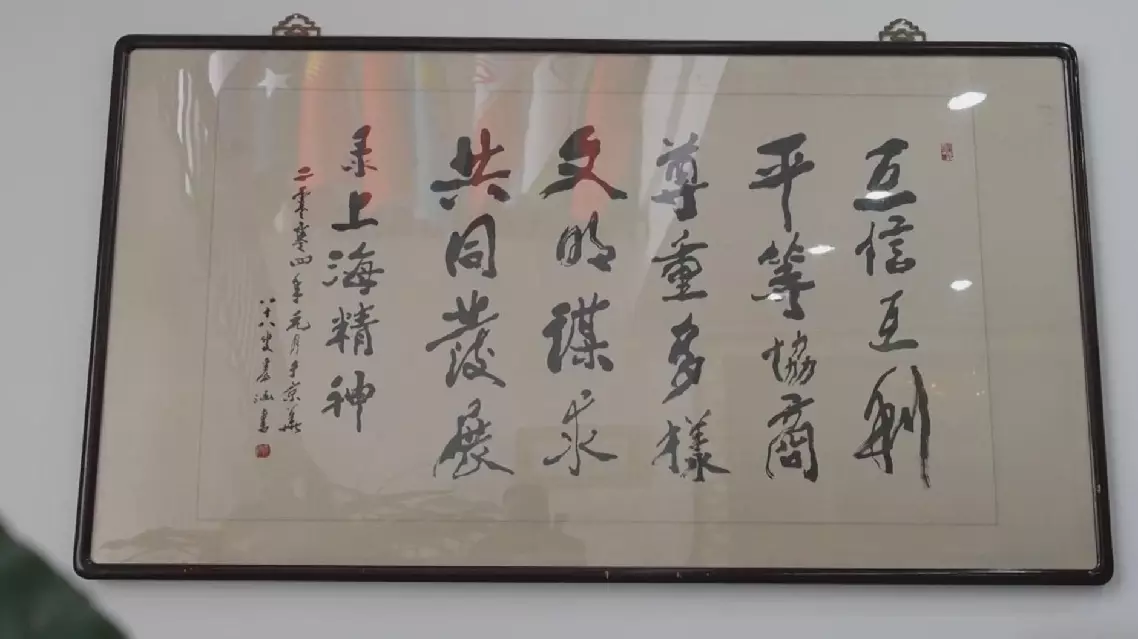 互信互利
平等協商
尊重多樣
文明謀求
共同發展
录上海精神
二零零四年元月于京華
八十八叟書